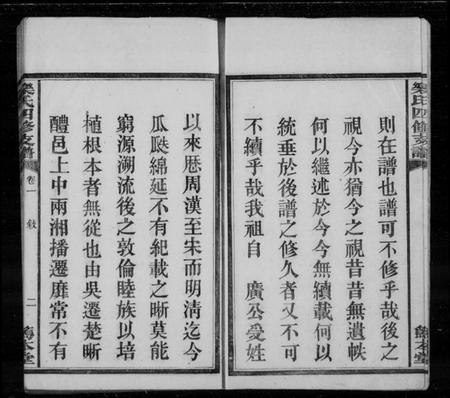 樂氏四修支譜
則在譜也譜可不修乎哉後之
視今亦猶今之視昔昔無遺帙
何以繼述於今今無續載何以
統垂於後譜之修久者又不可
不續乎哉我祖自 廣公受姓
敦本堂
以來歷周漢至宋而明淸迄今
瓜瓞綿延不有紀載之晰莫能
窮源溯流後之敦倫睦族以培
植根本者無從也由吳遷楚晰
醴邑上中兩湘播遷靡常不有
樂氏四修支譜
卷一 敘
二
敦本堂